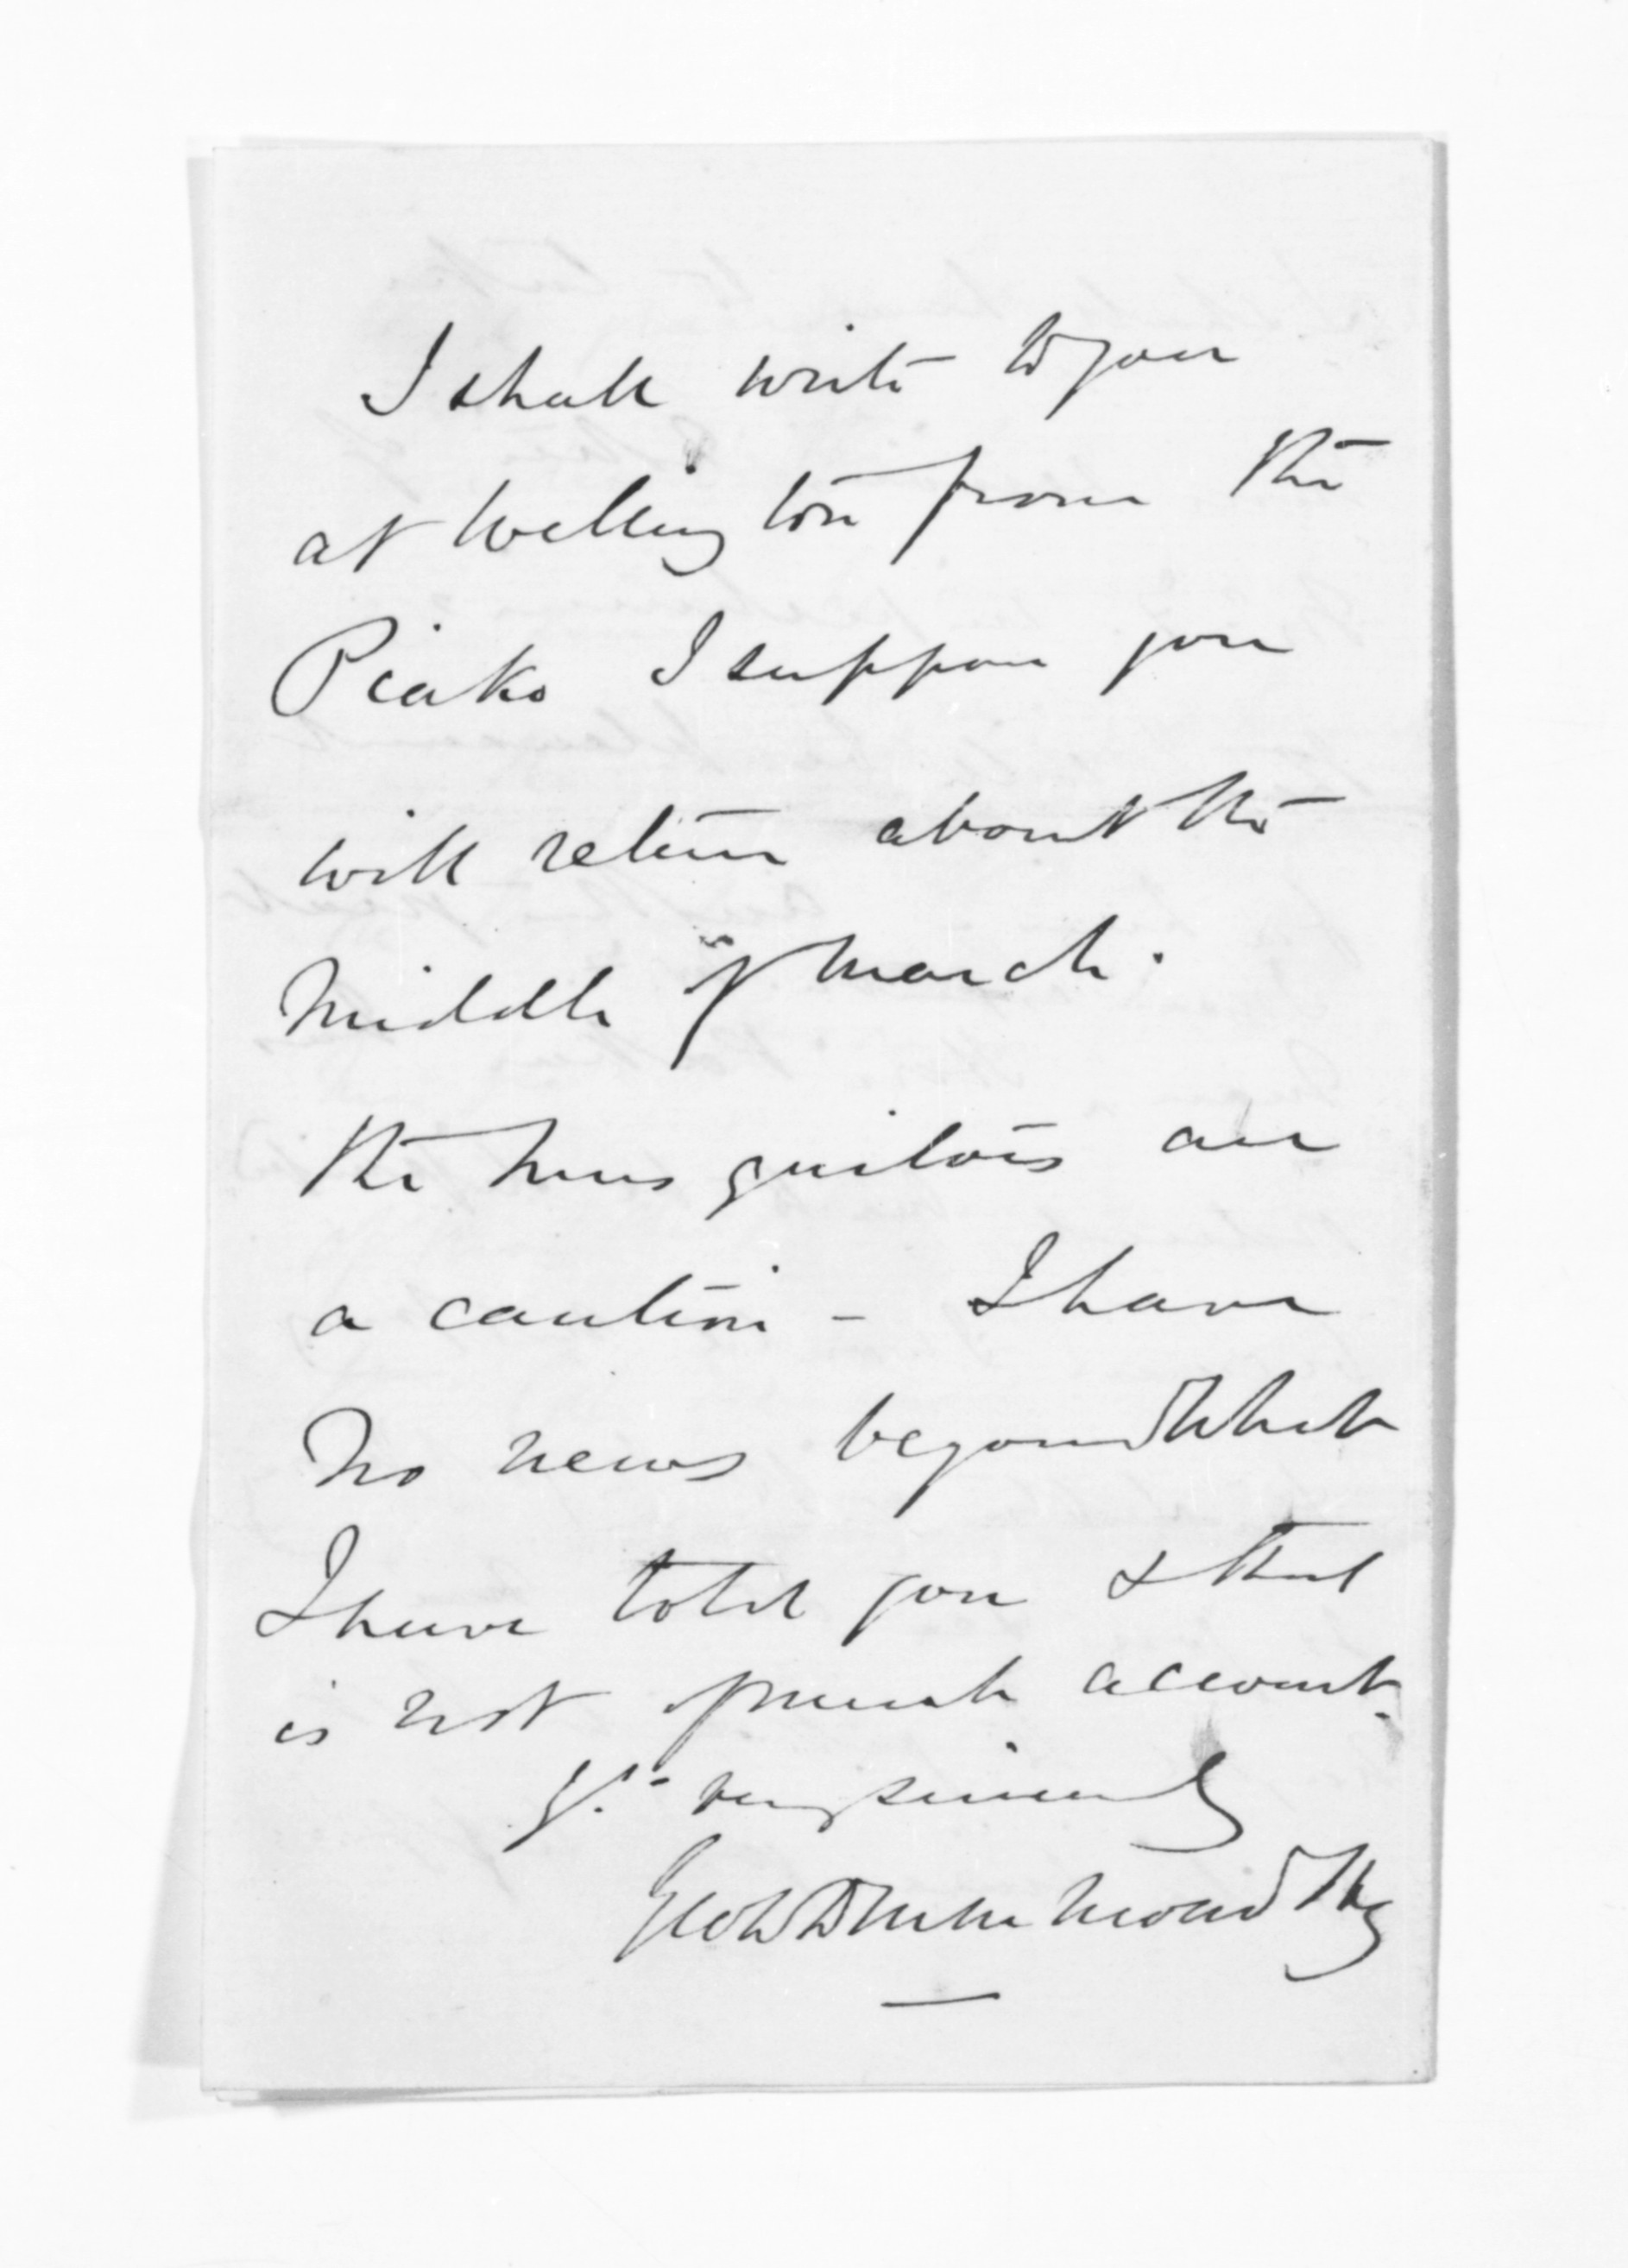 I shall write to you
at Wellington from the
Piako I suppose you
will return about the
Middle of March.
the Musquitoes are
a caution - I have
No news beyond what
I have told you & that
is not of much account.
Yrs very sincerely
Geo W Drummond Hay